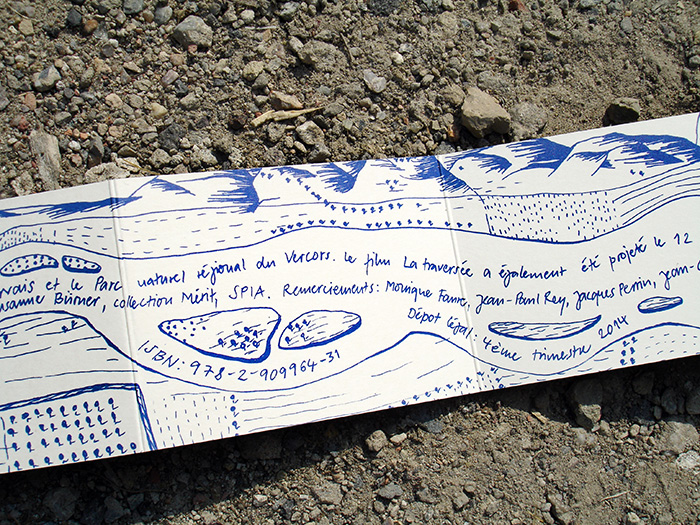 rvais et le Parc naturel régional du Vercors. Le film La traversée a également été projeté le 12
usanne Bürner, collection Mérit, SPIA. Remerciements: Monique Faure, Jean-Paul Rey, Jacques Perrin, Jean-C
Dépot légal: 4ème trimestre 2014
ISBN: 978-2-909964-31